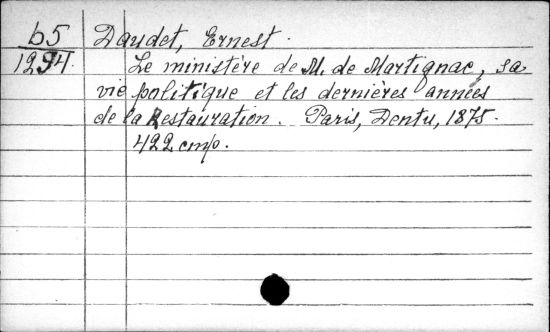 b5 Daudet, Ernest.
1294. Le ministère de M. de Martignac, sa
vie politique et les dernières années
de la Restauration. Paris, Dentu, 1875.
422 cmp.